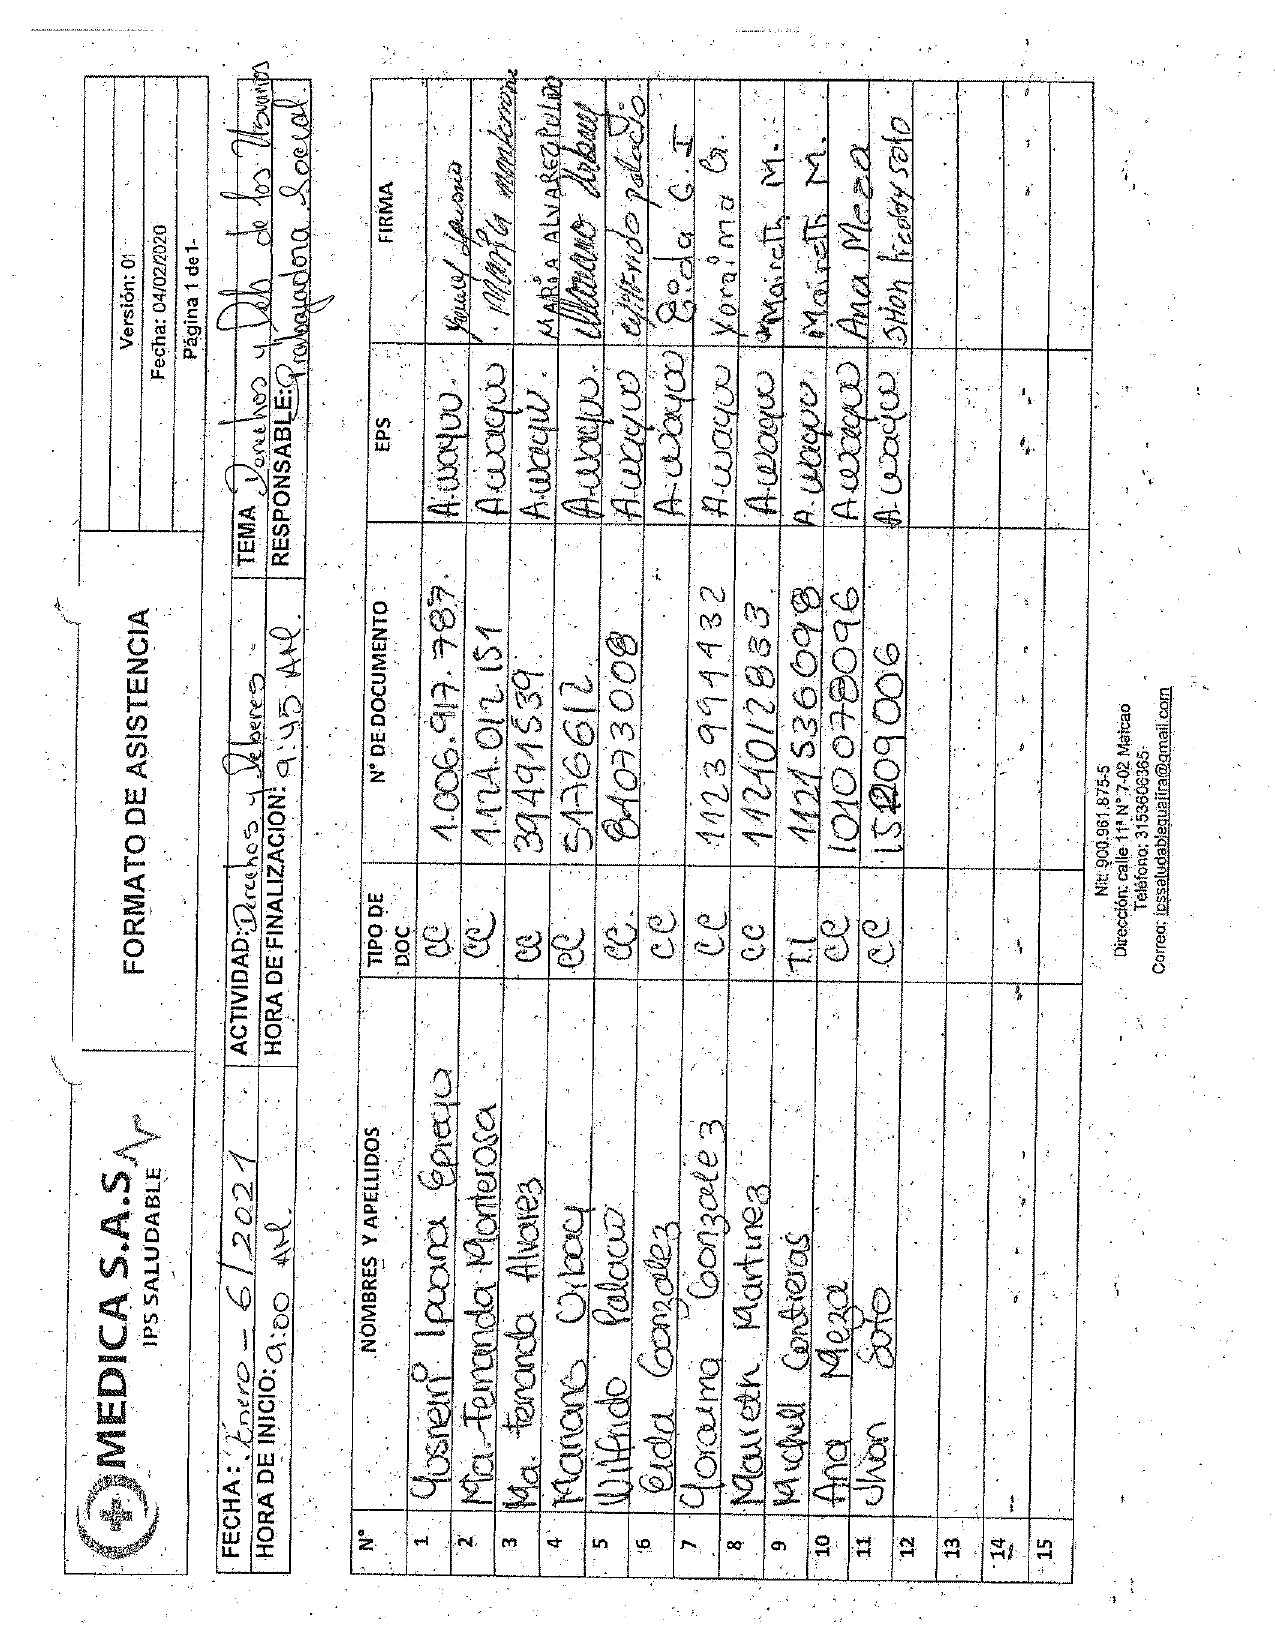 MEDICA S.A.S
IPS SALUDABLE
FORMATO DE ASISTENCIA
Versión: 01
Fecha: 04/02/2020
Página 1 de 1-
FECHA: Enero - 6/2021 ACTIVIDAD: Derechos y Deberes TEMA Derechos y Deb de los Usuarios
HORA DE INICIO: 9:00 AM. HORA DE FINALIZACION: 9:45 AM. RESPONSABLE: Trabajadora Social.
N° NOMBRES Y APELLIDOS TIPO DE DOC N° DE DOCUMENTO EPS FIRMA
1 Yusneiri Ipuana Epiayu CC 1.006.917.787. A.wayuu.
2 Ma-Fernanda Monterosa CC 1.124.012.151 A.wayuu María monterosa
3 Ma. Fernanda Alvarez CC 39491539. A.wayuu. MARÍA ALVAREZ PULIDO
4 Mariano Urbay CC 5176612 A.wayuu. Mariano Urbay
5 Wilfrido Palacio CC. 84073008 A.wayuu Wilfrido palacio.
6 Eida Gonzalez CC A-wayuu Eida G. I
7 Yoraima Gonzalez CC 1123994432 A.wayuu Yoraima G.
8 Maireth Martinez CC 1124012833. A.wayuu Maireth M.
9 Michell Contreras T.I 1121536098 A.wayuu Maireth M.
10 Ana Meza CC 1010078096 A.wayuu Ana Meza
11 Jhon Soto CC A.wayuu JHon Freddy Soto
12
13
14
15
Nit: 900.961.875-5
Dirección: calle 11ª N° 7-02 Maicao
Teléfono: 3153606365
Correo: ipssaludableguajira@gmail.com